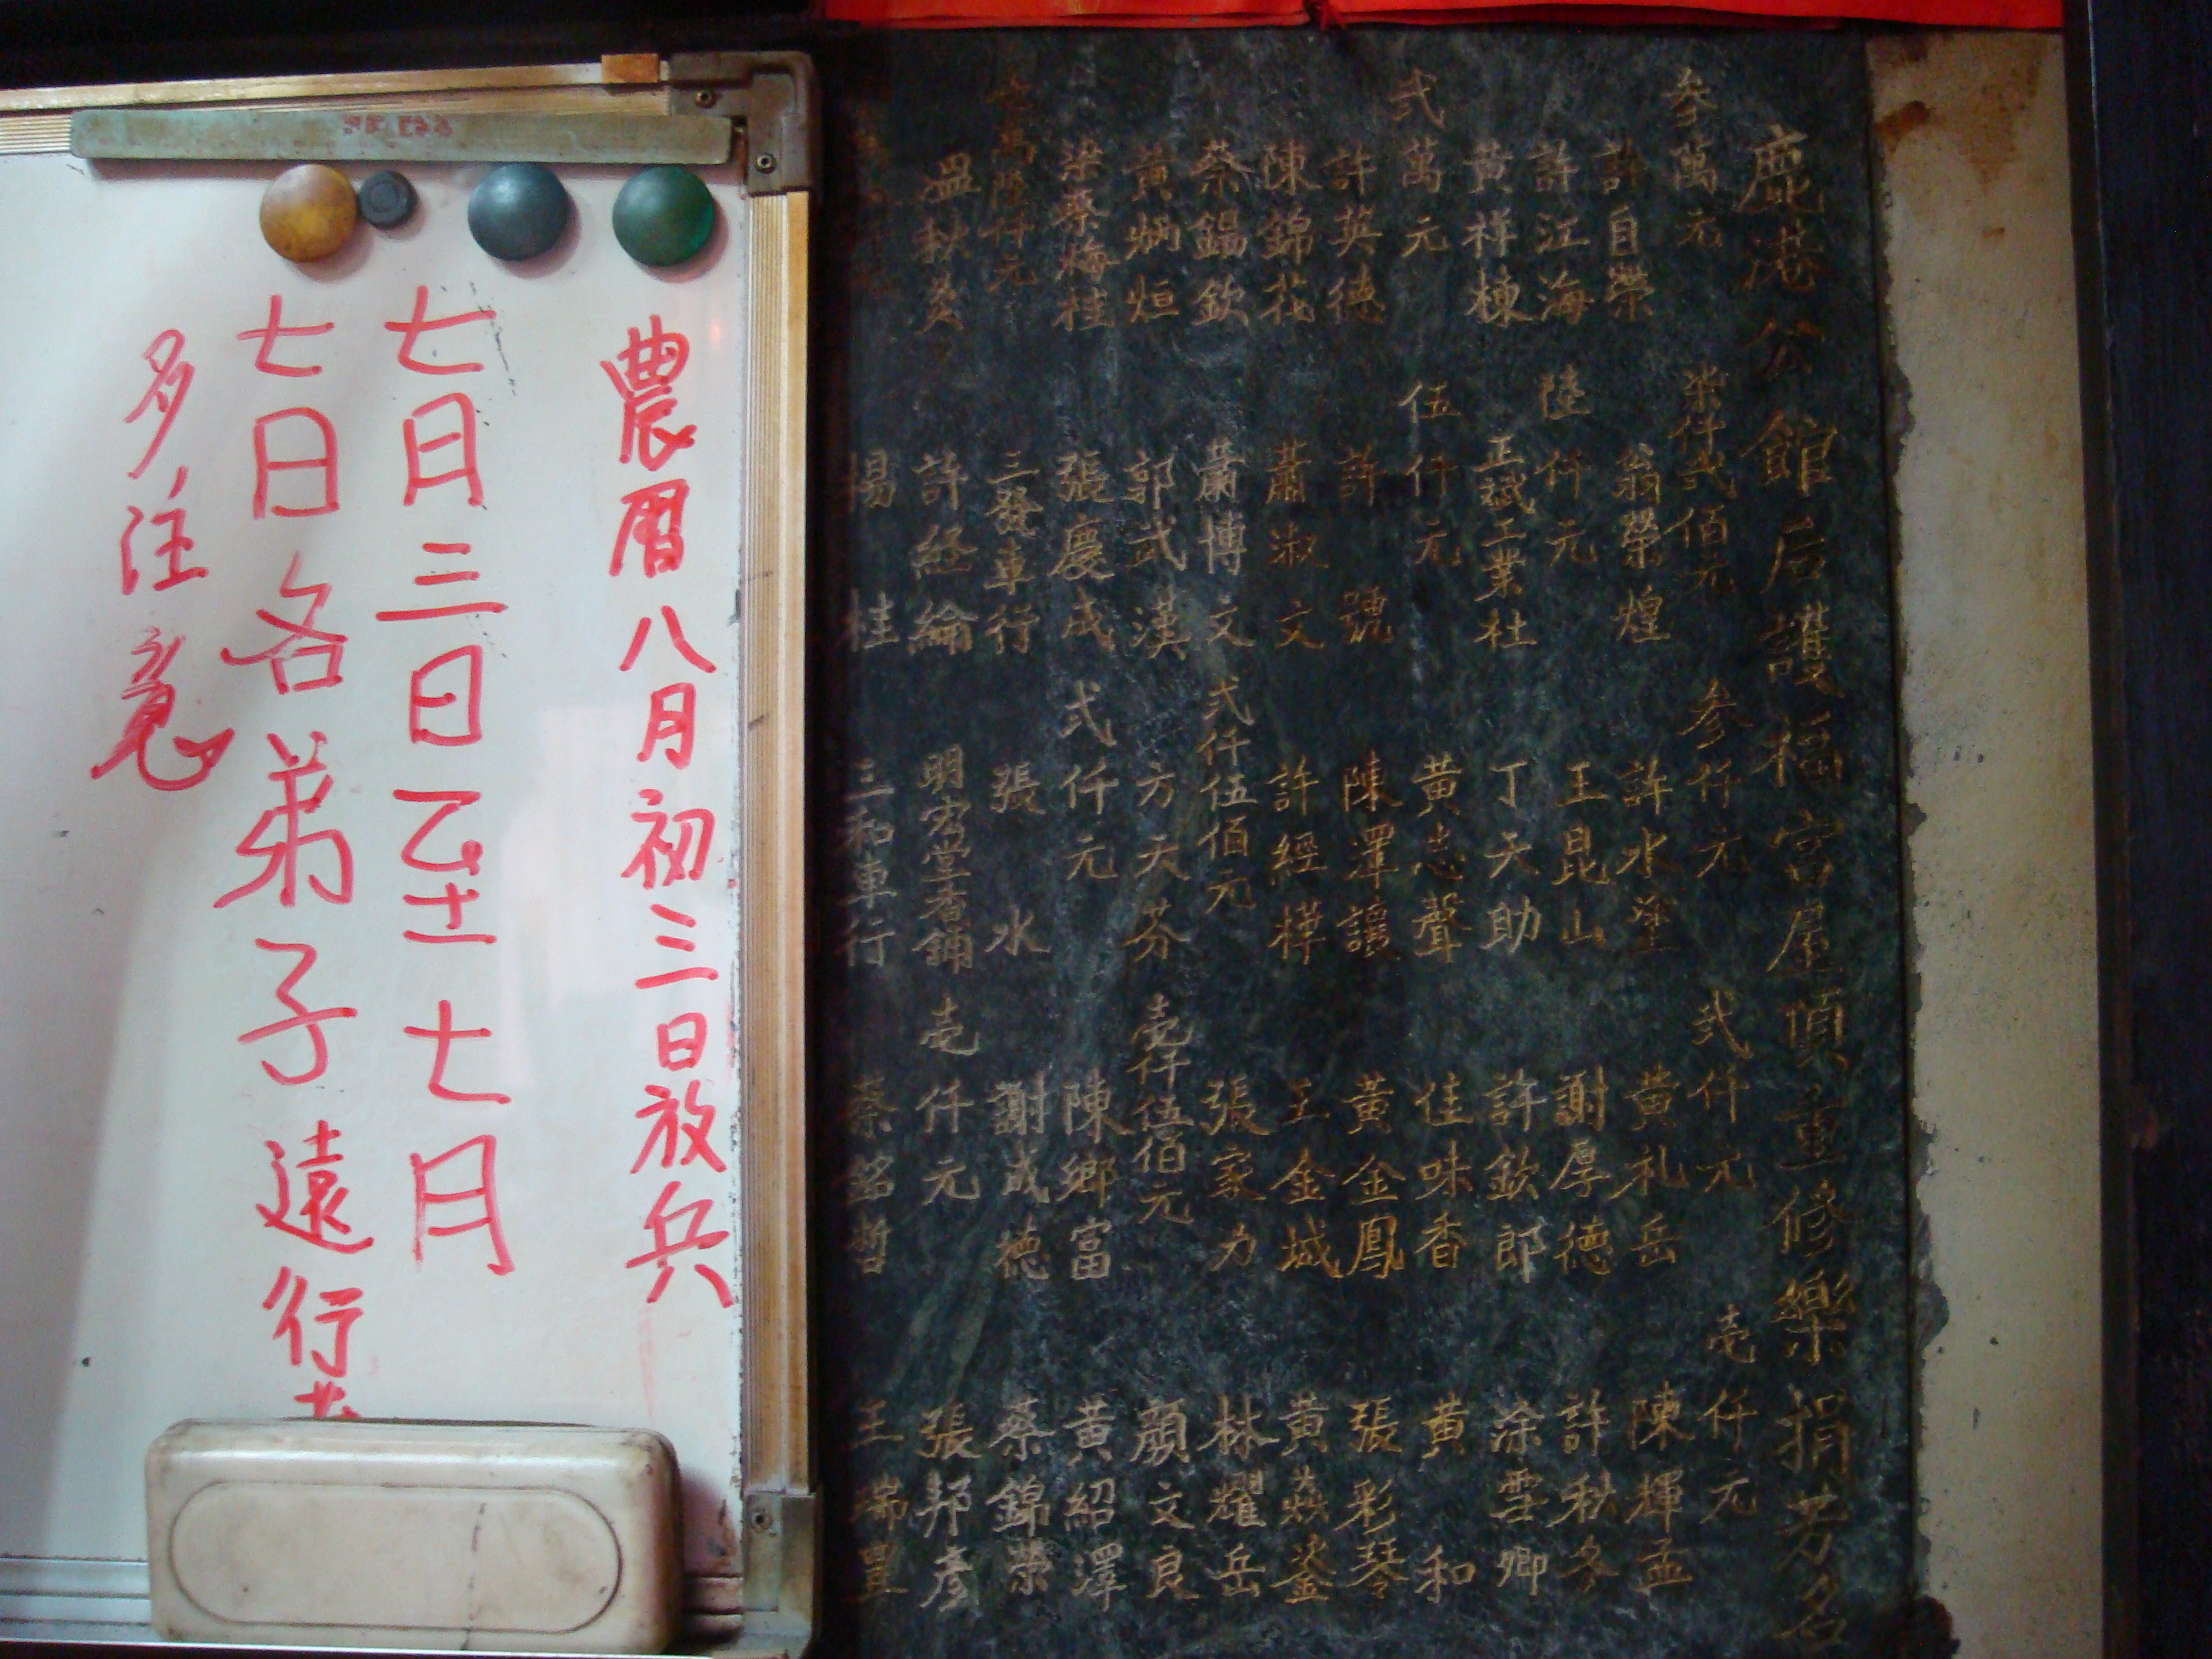 農曆八月初三日放兵
七月三日至七月
七日各弟子遠行
多注意
鹿港公館后護福宮屋頂重修樂捐芳名
参萬元 柒仟弍佰元 参仟元 弍仟元 壱仟元
許自榮 翁榮煌 許水塗 黃礼岳 陳輝孟
許江海 陸仟元 王昆山 謝厚德 許秋冬
黃祥棟 王斌工業社 丁天助 許欽郎 涂雪卿
弍萬元 伍仟元 黃志聲 佳味香 黃和
許英德 許號 陳澤讓 黃金鳳 張彩琴
陳錦花 蕭淑文 許經樺 王金城 黃燕鍌
蔡錫欽 蕭博文 弍仟伍佰元 張家力 林耀岳
黃炳烜 郭武漢 方天芬 壱仟伍佰元 顏文良
梁蔡梅桂 張慶成 弍仟元 陳鄉富 黃紹澤
三發車行 張水 謝成德 蔡錦榮
溫秋炎 許経綸 明宏堂香鋪 壱仟元 張邦彥
楊桂 三和車行 蔡銘哲 王瑞豊